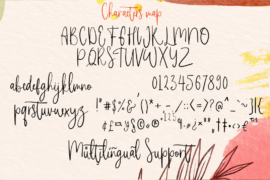 Characters map
ABCDEFGHIJKLMNO
PQRSTUVWXYZ
abcdefghijklmno
pqrstuvwxyz
01234567890
Multilingual Support